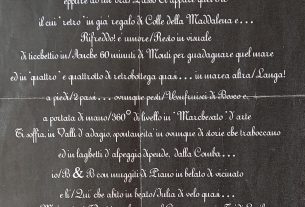 il cui "retro" in già regalo di Colle della Maddalena e...
Rifreddo! e' umore/Resto in visuale
di ticchettio in/Anche 60 minuti di Monti per guadagnare quel mare
ed in "quattro" e quattrotto di retrobottega quasi... in marea altra/Langa!
a piedi/2 passi... ovunque pesti/Usufruisci di Bosco e,
a portata di mano/360° di livello in "Marchesato" d'arte
Ti soffia, in Valli d'adagio, spontaneità in ovunque di storie che traboccano
ed in laghetti d'alpeggio dipende, dalla Comba...
io/B & B con muggiti di Piano in belato di vicinato
e lì/Qui che abito in beato/Julia di velo quasi...